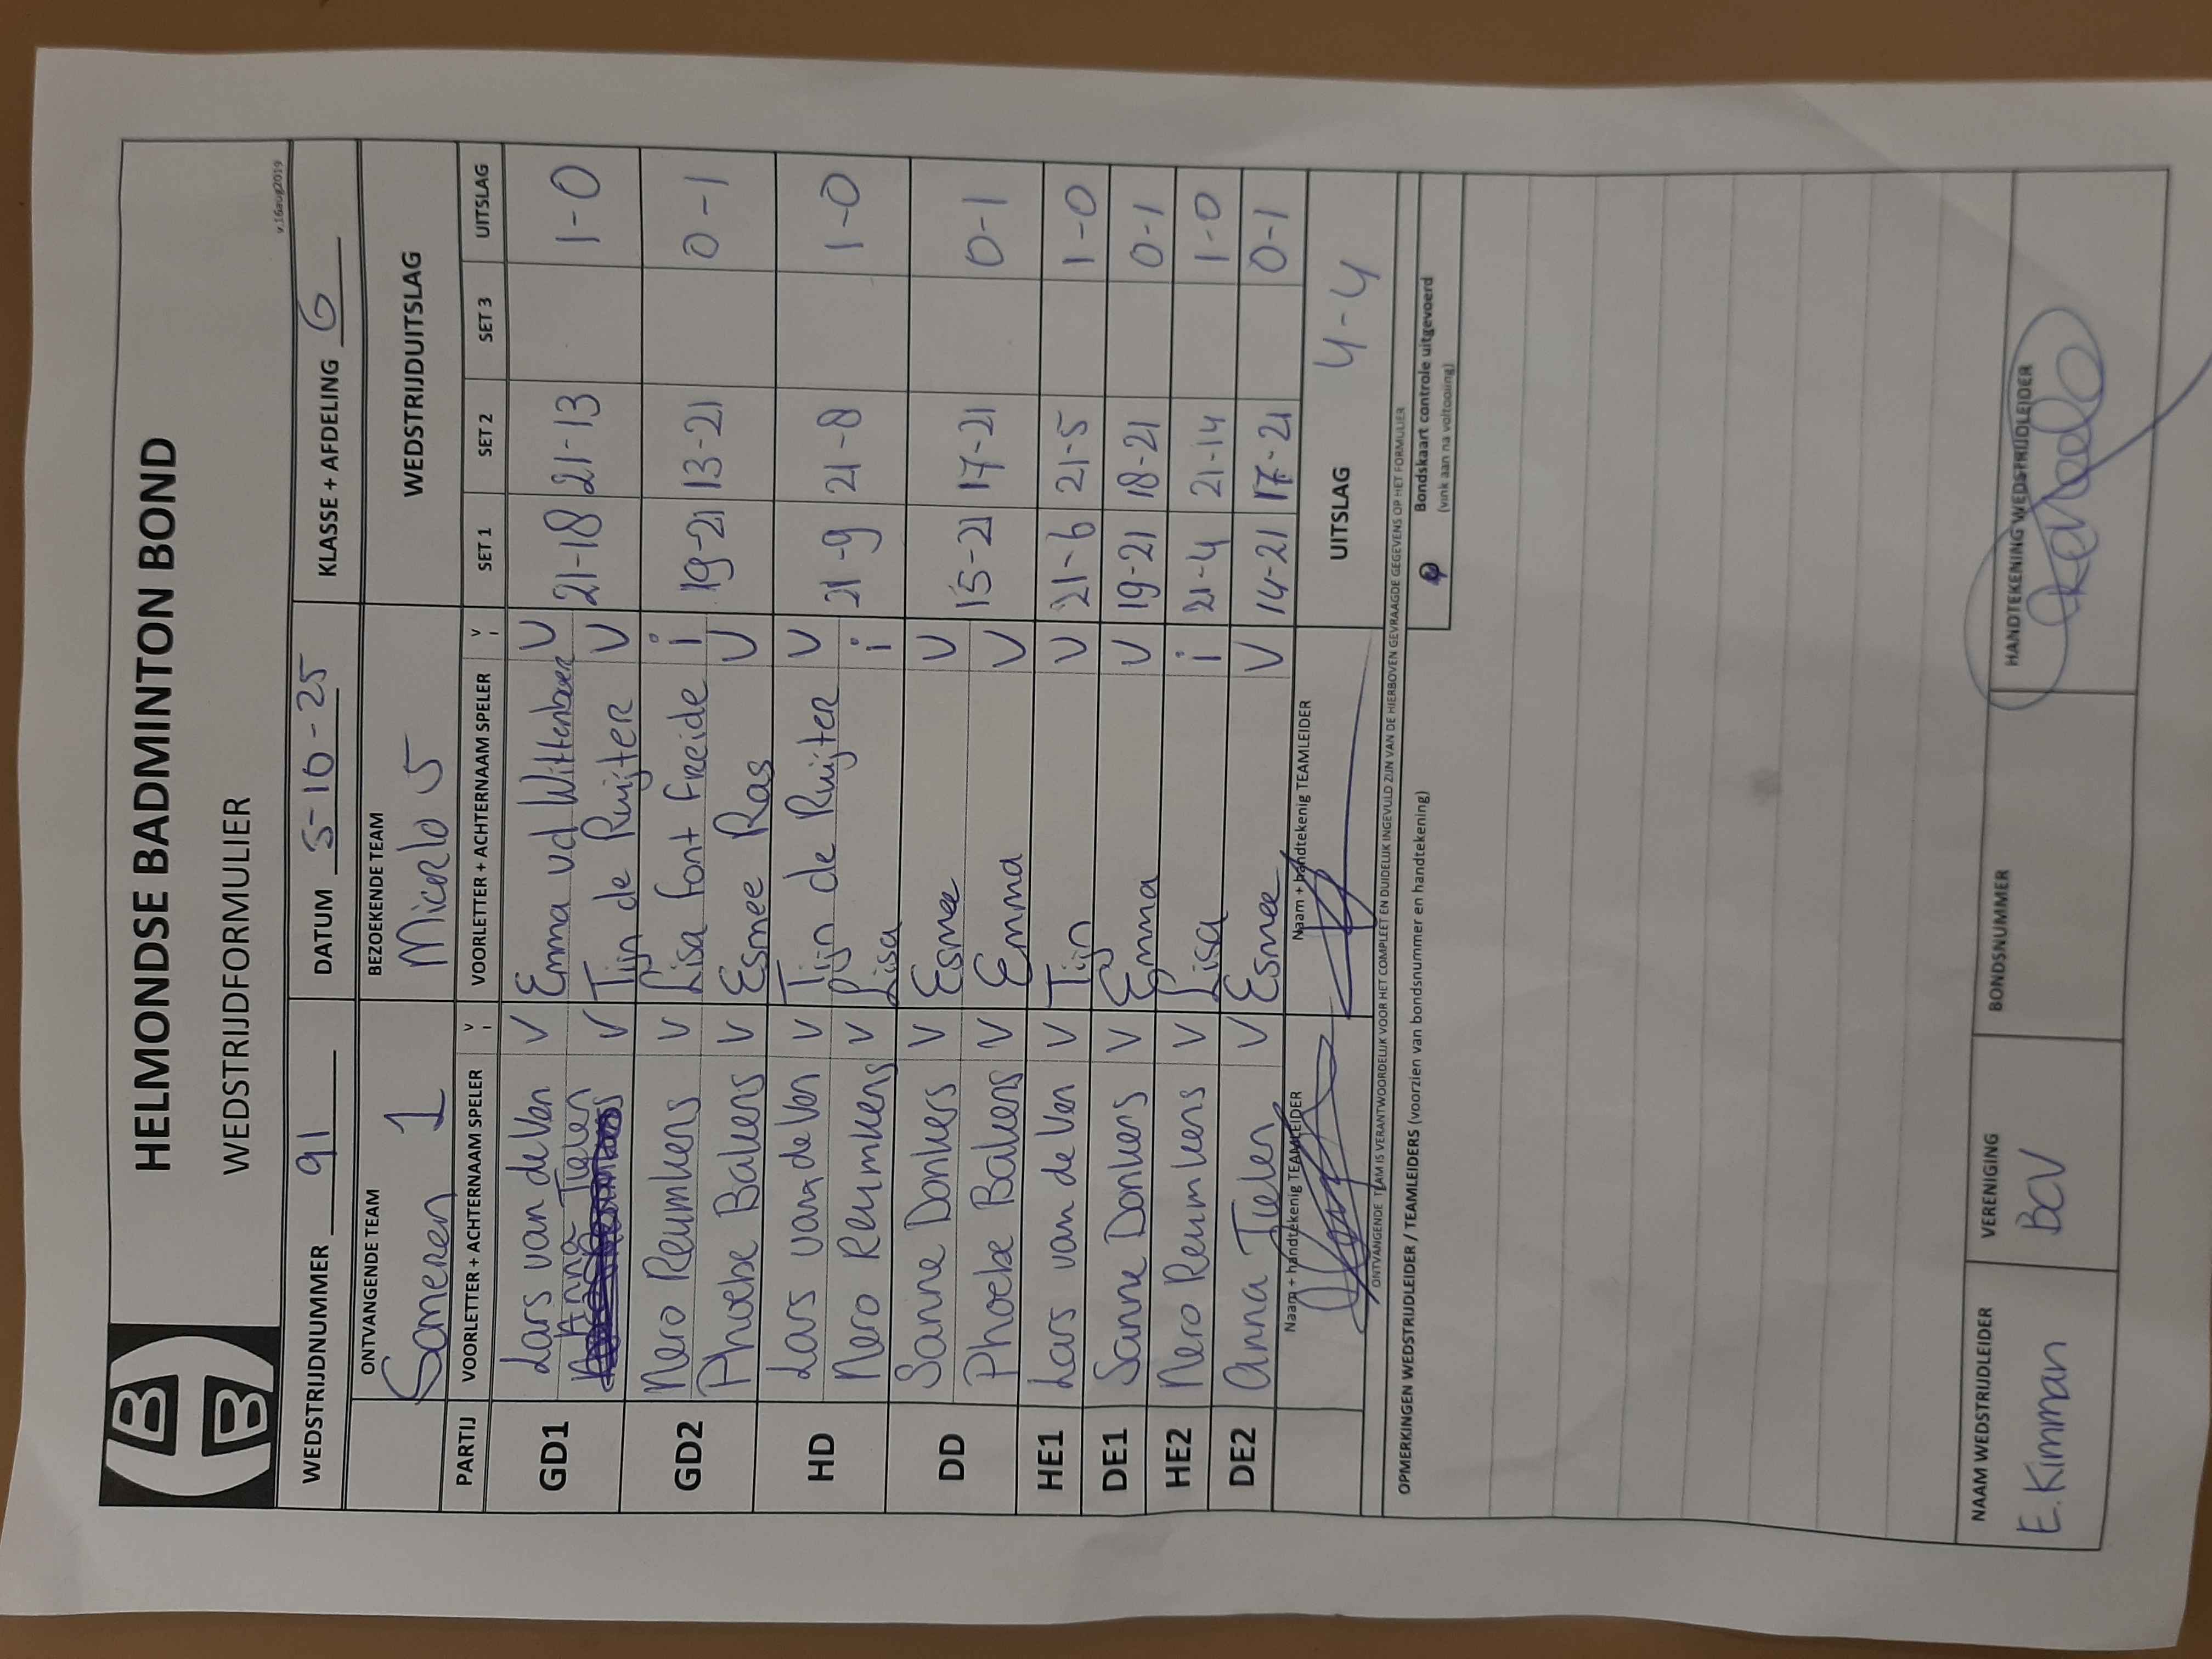 HELMONDSE BADMINTON BOND
WEDSTRIJDFORMULIER
v.16aug2019
WEDSTRIJDNUMMER 91 DATUM 5-10-25 KLASSE + AFDELING 6
ONTVANGENDE TEAM BEZOEKENDE TEAM WEDSTRIJDUITSLAG
Someren 1 Mierlo 5
PARTIJ VOORLETTER + ACHTERNAAM SPELER V I VOORLETTER + ACHTERNAAM SPELER V I SET 1 SET 2 SET 3 UITSLAG
GD1 Lars van de Ven V Emma vd Wittenboer V
Anna Tielen V Tijn de Ruijter V 21-18 21-13 1-0
GD2 Nero Reumkens V Lisa font Freide i
Phoebe Bakens V Esmee Ras V 19-21 13-21 0-1
HD Lars van de Ven V Tijn de Ruijter V
Nero Reumkens V Lisa i 21-9 21-8 1-0
DD Sanne Donkers V Esmee V
Phoebe Bakens V Emma V 15-21 17-21 0-1
HE1 Lars van de Ven V Tijn V 21-6 21-5 1-0
DE1 Sanne Donkers V Emma V 19-21 18-21 0-1
HE2 Nero Reumkens V Lisa i 21-4 21-14 1-0
DE2 Anna Tielen V Esmee V 14-21 17-21 0-1
Naam + handtekenig TEAMLEIDER Naam + handtekenig TEAMLEIDER UITSLAG 4-4
ONTVANGENDE TEAM IS VERANTWOORDELIJK VOOR HET COMPLEET EN DUIDELIJK INGEVULD ZIJN VAN DE HIERBOVEN GEVRAAGDE GEGEVENS OP HET FORMULIER
OPMERKINGEN WEDSTRIJDLEIDER / TEAMLEIDERS (voorzien van bondsnummer en handtekening)
Bondskaart controle uitgevoerd
(vink aan na voltooiing)
NAAM WEDSTRIJDLEIDER VERENIGING BONDSNUMMER HANDTEKENING WEDSTRIJDLEIDER
E. Kimman BCV